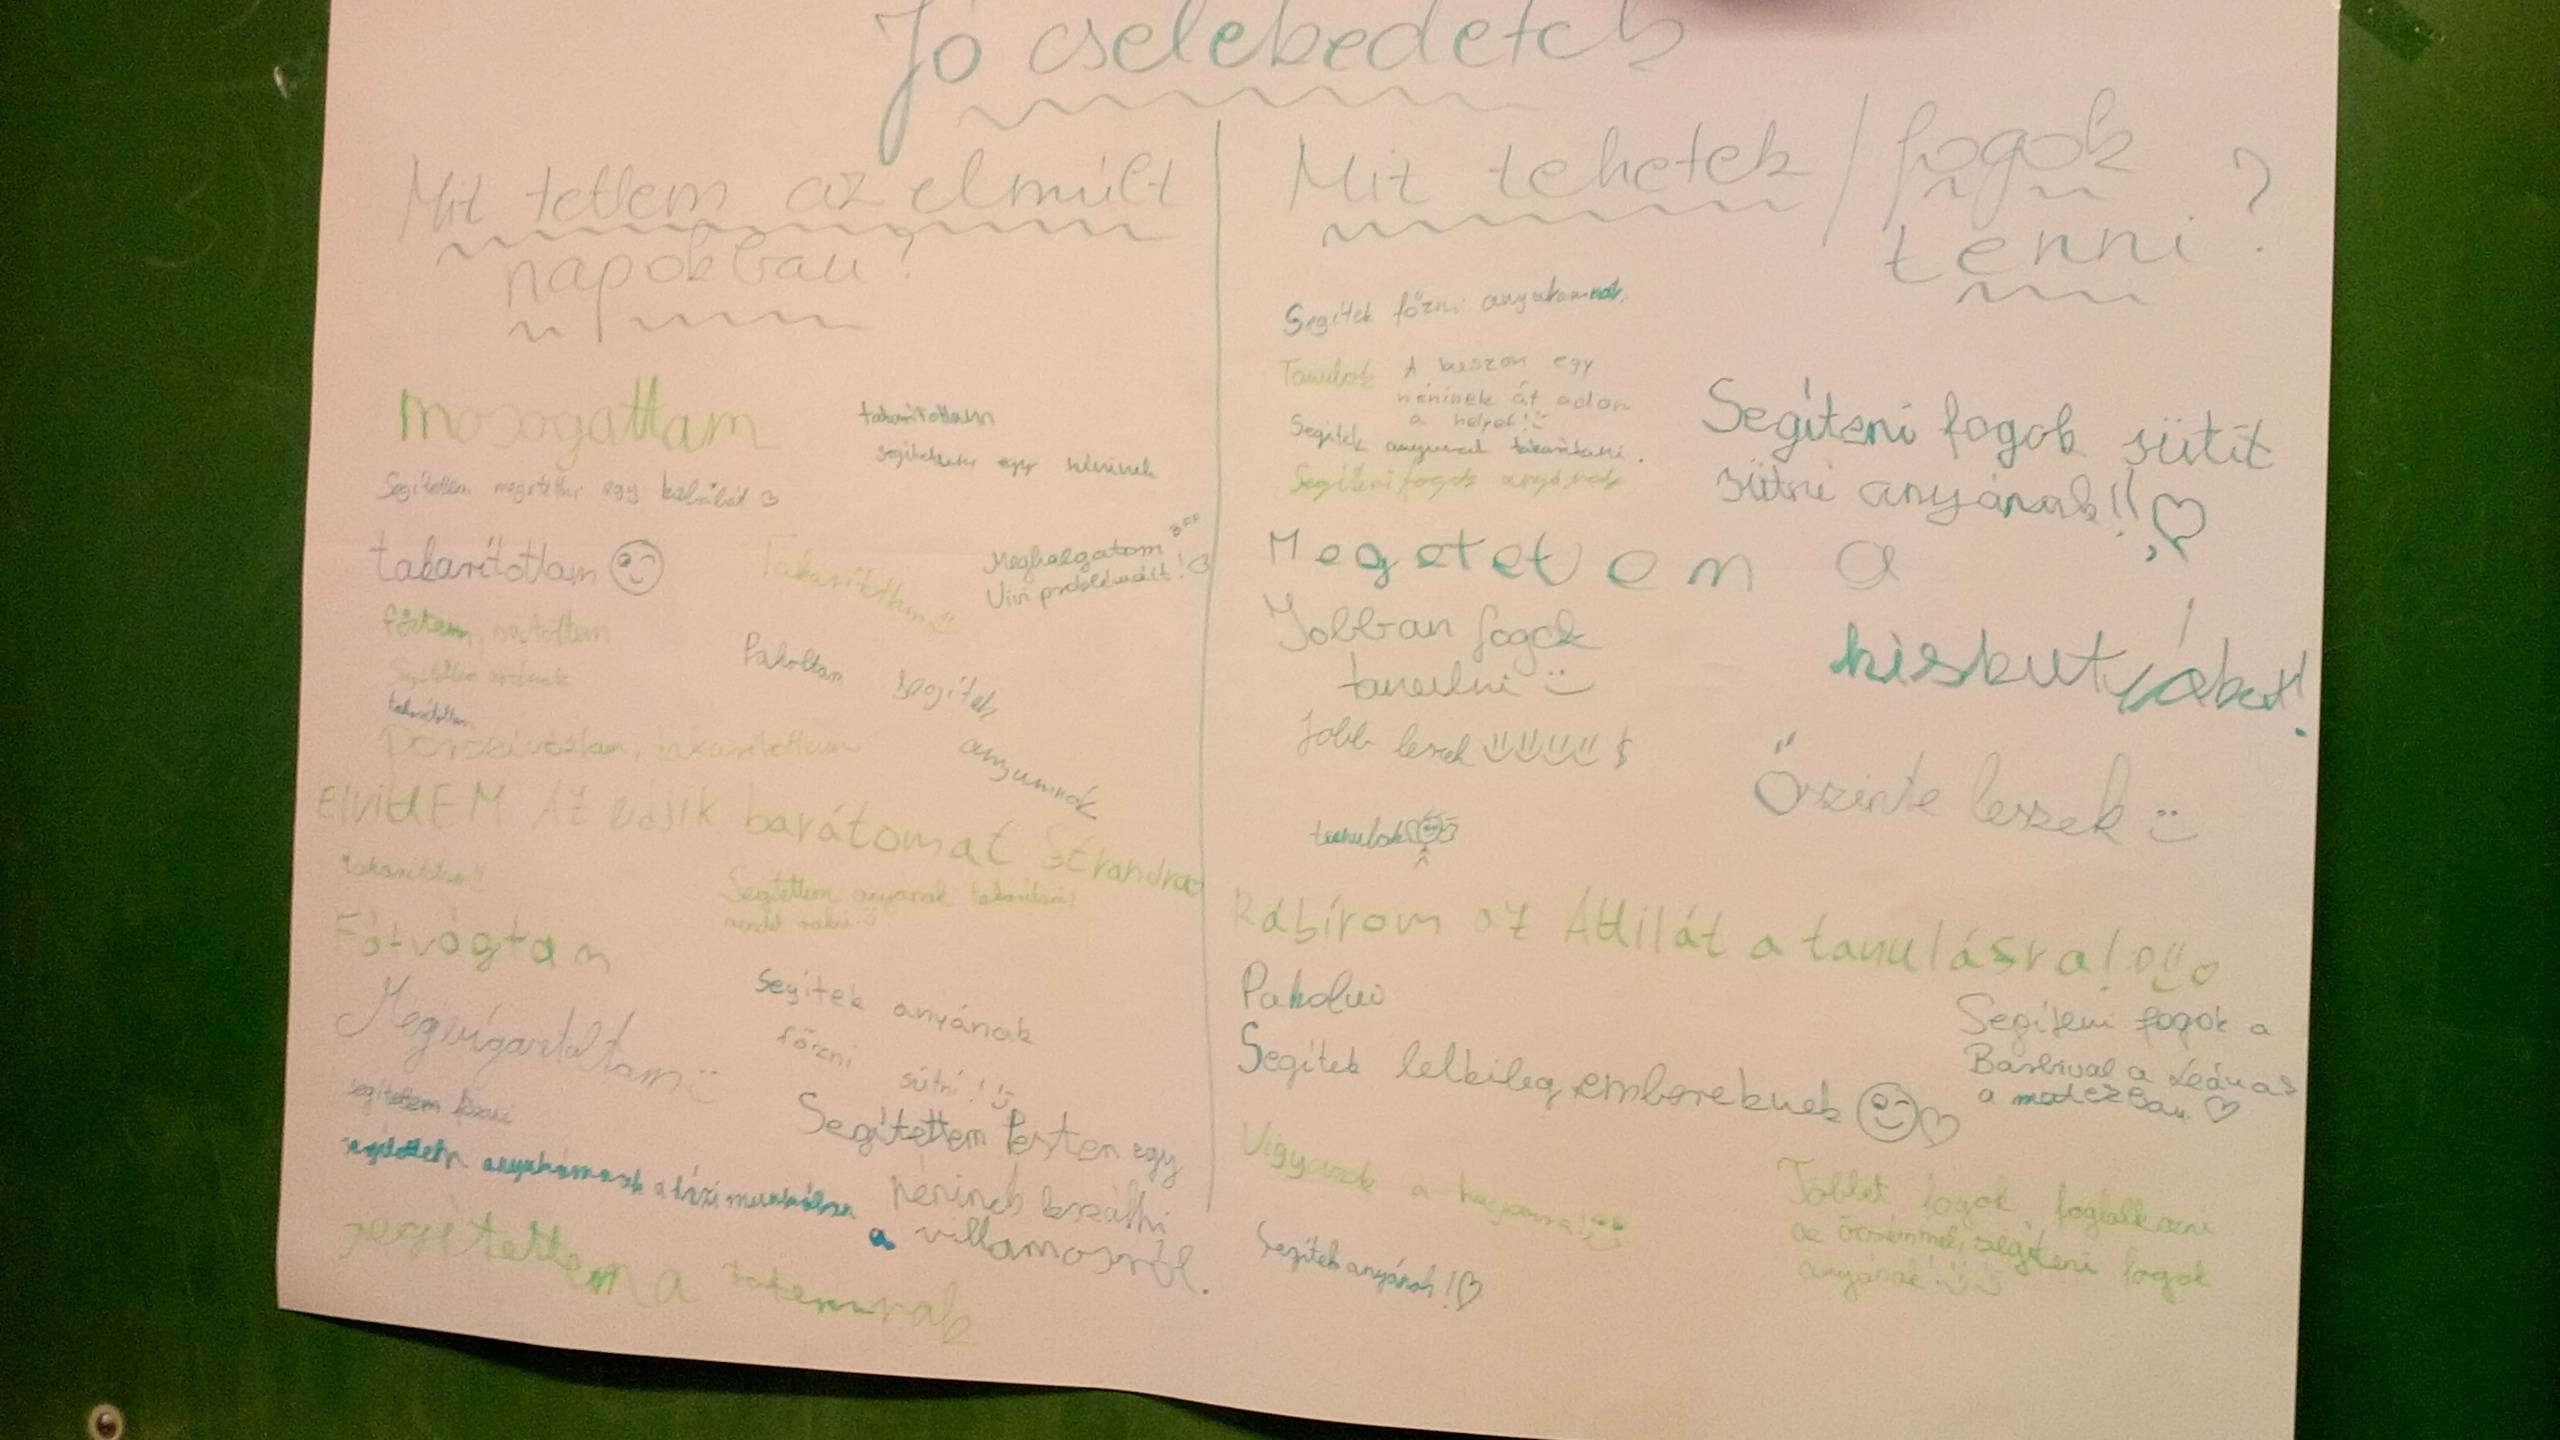 Jó cselekedetek
Mit tettem az elmúlt
napokban?
mosogattam
takarítottam
segítettem egy néninek
Segítettem megetetni egy
takarítottam
Takarítottam
BFF
Meghalgatom
Vivi problémáit!
főztem, sütöttem
Segítettem
takarítottam
Pakoltam
segítek
anyumnak
porszívóztam, takarítottam
ElvittEM Az barátomat Strandra
takarítottam!!
Segítettem anyának takarítani,
rendet rakni
Fát vágtam
Megvígasztaltam
Segítek anyának
főzni
sütni!
segítettem főzni
segítettem anyukámnak a házi munkában
Segítettem Pesten egy
néninek leszállni
a villamosról.
segítettem a tatámnak
Mit tehetek / fogok
tenni?
Segítek főzni anyukámnak.
Tanulok
A buszon egy
néninek át adom
a helyet!
Segítek anyumnak takarítani.
Segíteni fogok anyának
Segíteni fogok sütit
sütni anyának!!
Megetetem a
kiskutyákat!
Jobban fogok
tanulni
Jobb leszek
Őszinte leszek
tanulok
Rábírom az Attilát a tanulásra!
Pakolni
Segítek lelkileg embereknek
Segíteni fogok a
a
a matezban
Vigyázok a húgomra!
Segítek anyának!
Többet fogok foglalkozni
az öcsémmel, segíteni fogok
anyának!